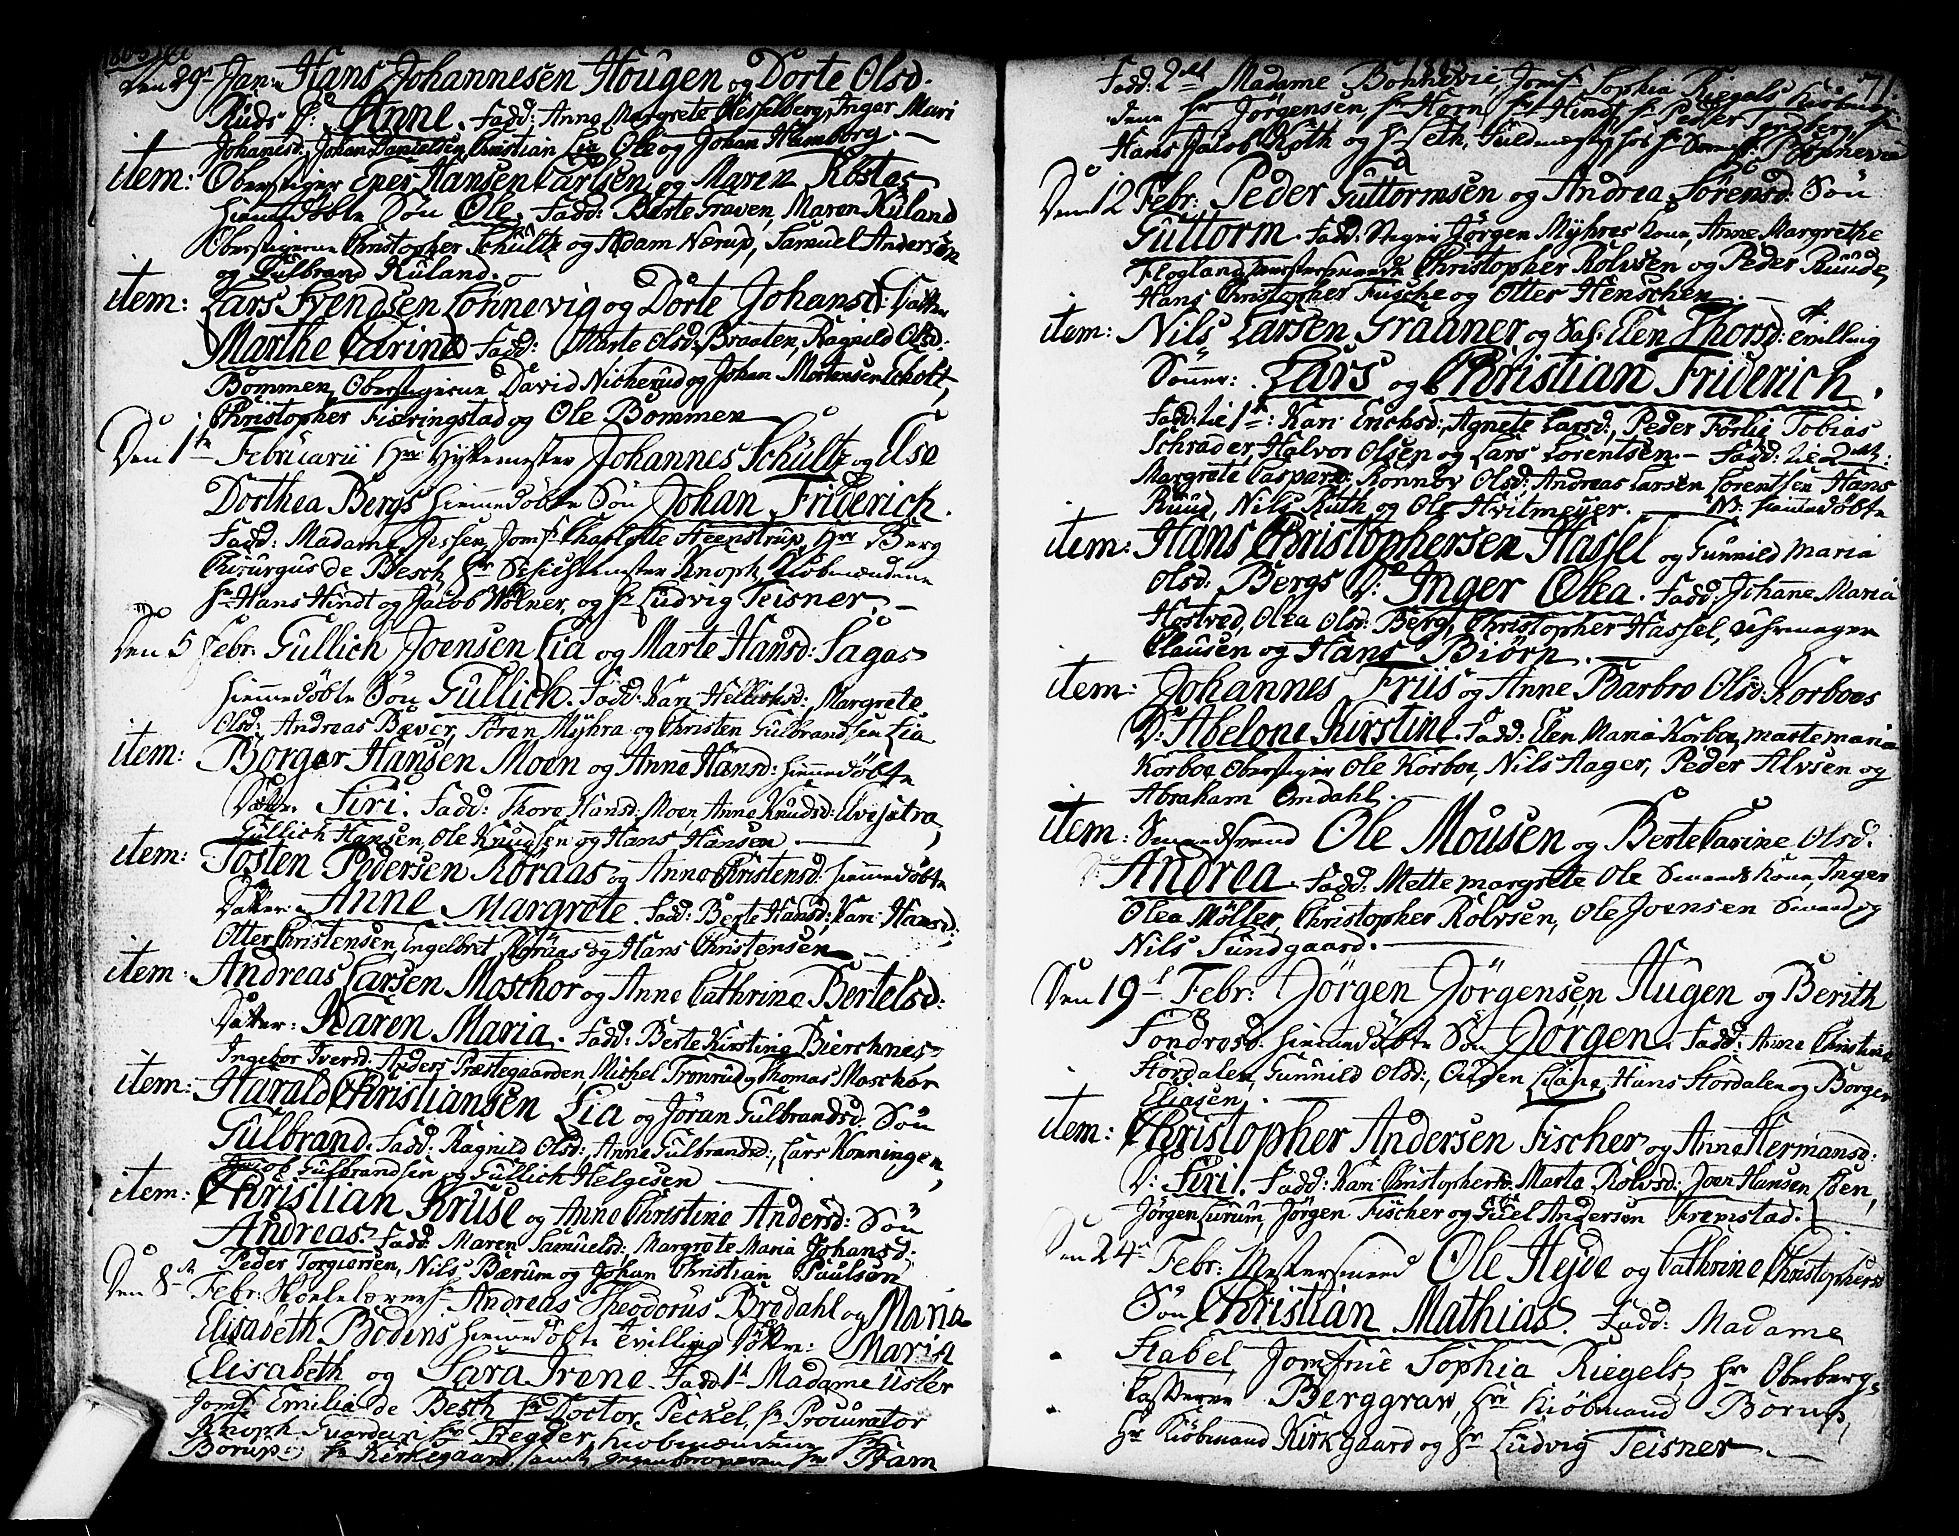 Den 29 Jan: Hans Johannesen Hougen og Dorte Olsd.
Ruds D: Anne. Fadd: Anne Margrete Hesselberg, Inger Mari
Johanesd:, Johan Danielsen, Christian Lia, Ole og Johan Hamborg.
item: Oberstiger Eper Hansen Carlsen og Maren Røstas
hiemmedøbte Søn Ole. Fadd: Berte Graven, Maren Ruland
Oberstigerne Christopher Schultz og Adam Nærup, Samuel Andersen
og Gulbrand Ruland.
item: Lars Svendsen Lohnevig og Dorte Johansd: Datter
Marthe Carine Fadd: Marte Olsd: Braaten, Ragnild Olsd:
Bommen, Oberstigerne David Nicherud og Johan Mortensen Echolt,
Christopher Fisringstad og Ole Bommen
Den 1te Februarii Hyttemester Johannes Schultz og Else
Dorthea Bergs hiemmedøbte Søn Johan Friderich.
Fadd: Madame Jessen, Jomf: Charlotte Steenstrup, Hr Berg
Chirurgus de Besch Hr Knoph Kiøbmændene
Hr Hans Hindt og Jacob Wølner, og Hr Ludvig Teisner.
Den 5 Febr: Gullich Joensen Lia og Marte Hansd: Sagas
hiemmedøbte Søn Gullich. Fadd: Kari Hellichsd:, Margrete
Olsd: Andreas Bæver, Søren Myhra og Christen Gulbrandsen Lia
item: Borger Hansen Moen og Anne Hansd: hiemmedøbte
Datter Siri. Fadd: Thore Hansd: Moen, Anne Knudsd: Elvesætra,
Gullich Hansen, Ole Knudsen og Hans Hansen
item: Tosten Pedersen Røraas og Anne Christensd: hiemmedøbte
Datter: Anne Margrete. Fadd: Berte Hansd:, Kari Hansd:,
Otter Christensen, Ingelbret Røraas og Hans Christensen
item: Andreas Larsen Moschor og Anne Cathrine Bertelsd:
Datter: Karen Maria. Fadd: Berte Kirstine Bierchnes,
Ingebor Iversd: Anders Præstegaarden, Michel Trønrud og Thomas Moschor
item: Harald Christiansen Lia og Jøran Gulbrandsd: Søn
Gulbrand. Fadd: Ragnild Olsd:, Anne Gulbrandsd:, Lars Konningen,
Jacob Gulbrandsen og Gullich Helgesen
item: Christian Kruse og Anne Christine Andersd: Søn
Andreas. Fadd: Maren Samuelsd:, Margrete Maria Johansd:
Peder Torgiersen, Nils Bærum og Johan Christian Paulsen
Den 8de Febr: Hr Andreas Theodorus Bredahl og Maria
Elisabeth Bodins hiemmedøbte Tvilling Døttre: Maria
Elisabeth og Sara Irene. Fadd 1te Madame Uster
Jomf: Emilia de Besch Hr Doctor Peckel, Hr Procurator
Knoph Hr Hegder, Kiøbmændene
Borup, Hr Kirkegaard, samt Hr Stam
Fadd: 2den Madame Bonnevie, Jomf: Sophia Riegels, Kiøbmæn-
dene Hr Jørgensen, Hr Horn, Hr Hindt, Hr Peder Tandberg, Hr
Hans Jacob Roth og Hr Leth, Fuldmægtig hos Hr Bonnevie
Den 12 Febr: Peder Guttormsen og Andrea Sørensd: Søn
Guttorm. Fadd: Stiger Jørgen Myhres Kone, Anne Margrethe
Flogland, Christopher Rolvsen og Peder Ruude,
Hans Christopher Fusche og Otter Henschen.
item: Nils Larsen Graaner og Sal: Elen Thorsd: tvilling
Sønner: Lars og Christian Friderich.
Fadd: til 1te: Kari Erichsd:, Agnete Larsd:, Peder Førlie, Tobias
Schrader, Halvor Olsen og Lars Lorentsen. Fadd: til 2den:
Margrete Caspersd: Ronnby Olsd: Andreas Larsen Lorentsen Hans
Ruud, Nils Ruth og Ole Hvitmeyer. NB: hiemmedøbte
item: Hans Christophersen Hassel og Gunnild Maria
Olsd: Bergs D: Inger Olea. Fadd: Johane Maria
Hostved, Olea Olsd: Berg, Christopher Hassel, Uhrmager
Clausen og Hans Biørn.
item: Johannes Friis og Anne Barbro Olsd: Korboes
D: Abelone Kirstine. Fadd: Elen Maria Korboe, Marte Maria
Korboe, Oberstiger Ole Korboe, Nils Hager, Peder Alvsen og
Abraham Omdahl.
item: Svend Ole Mousen og Berte Carine Olsd.
D: Andrea. Fadd: Mette Margrete Ole Svends Kone, Inger
Olea Møller, Christopher Rolvsen, Ole Joensen Svend og
Nils Sundgaard.
Den 19de Febr: Jørgen Jørgensen Hugen og Berith
Tondresd: hiemmedøbte Søn Jørgen. Fadd: Anne Christine
Stordalen, Gunnild Olsd:, Ouden Liane, Hans Stordalen og Borger
Eliasen.
item: Christopher Andersen Fischer og Anne Hermansd:
D: Siri. Fadd: Kari Christophersd: Marta Rolvsd: Joen Hansen Loen,
Jørgen Lurum, Jørgen Fischer og Giæl Andersen Fremstad.
Den 24de Febr: Mestersvend Ole Hejde og Cathrine Christophersd
Søn Christian Mathias. Fadd: Madame
Stabel, Jomfrue Sophia Riegels, Hr Oberberg-
casserer Berggrav, Hr Kiøbmand Borup,
Hr Kiøbmand Kirkgaard og Hr Ludvig Teisner